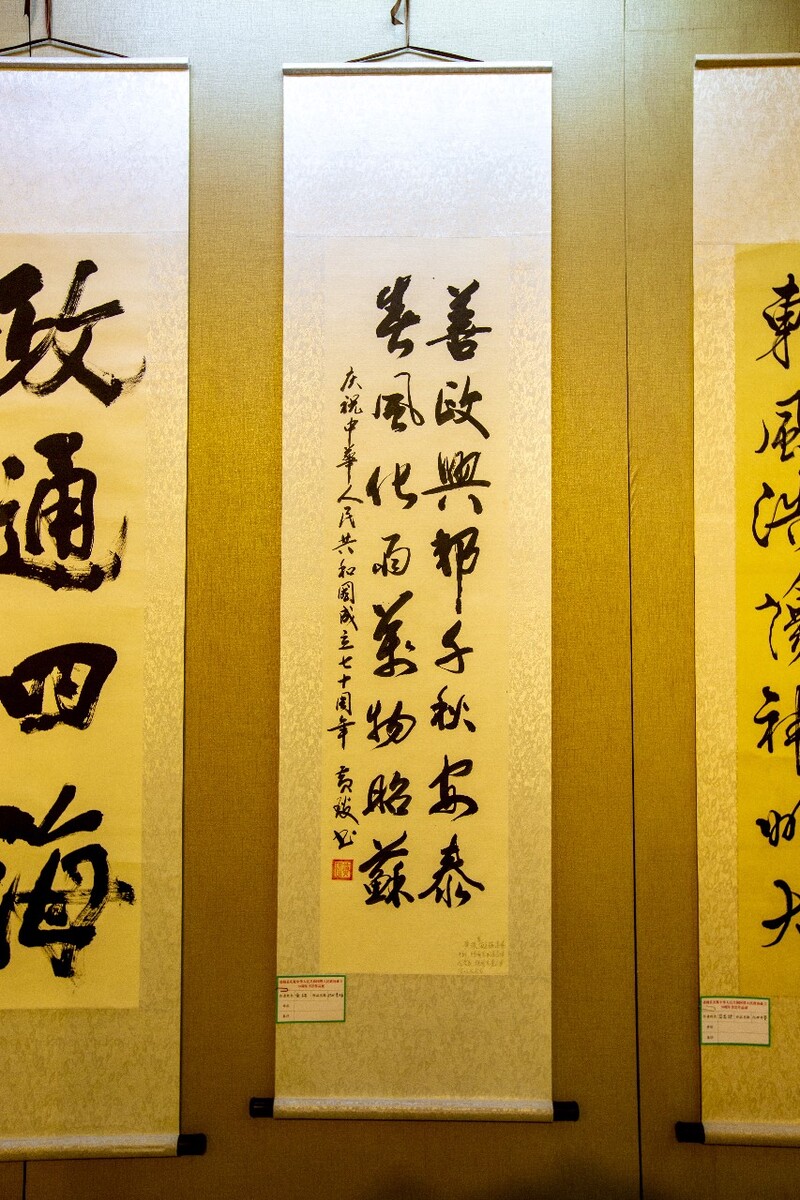 東風浩蕩神州大
善政興邦千秋安泰
春風化雨萬物昭蘇
庆祝中華人民共和國成立七十周年 黄 书
政通四海